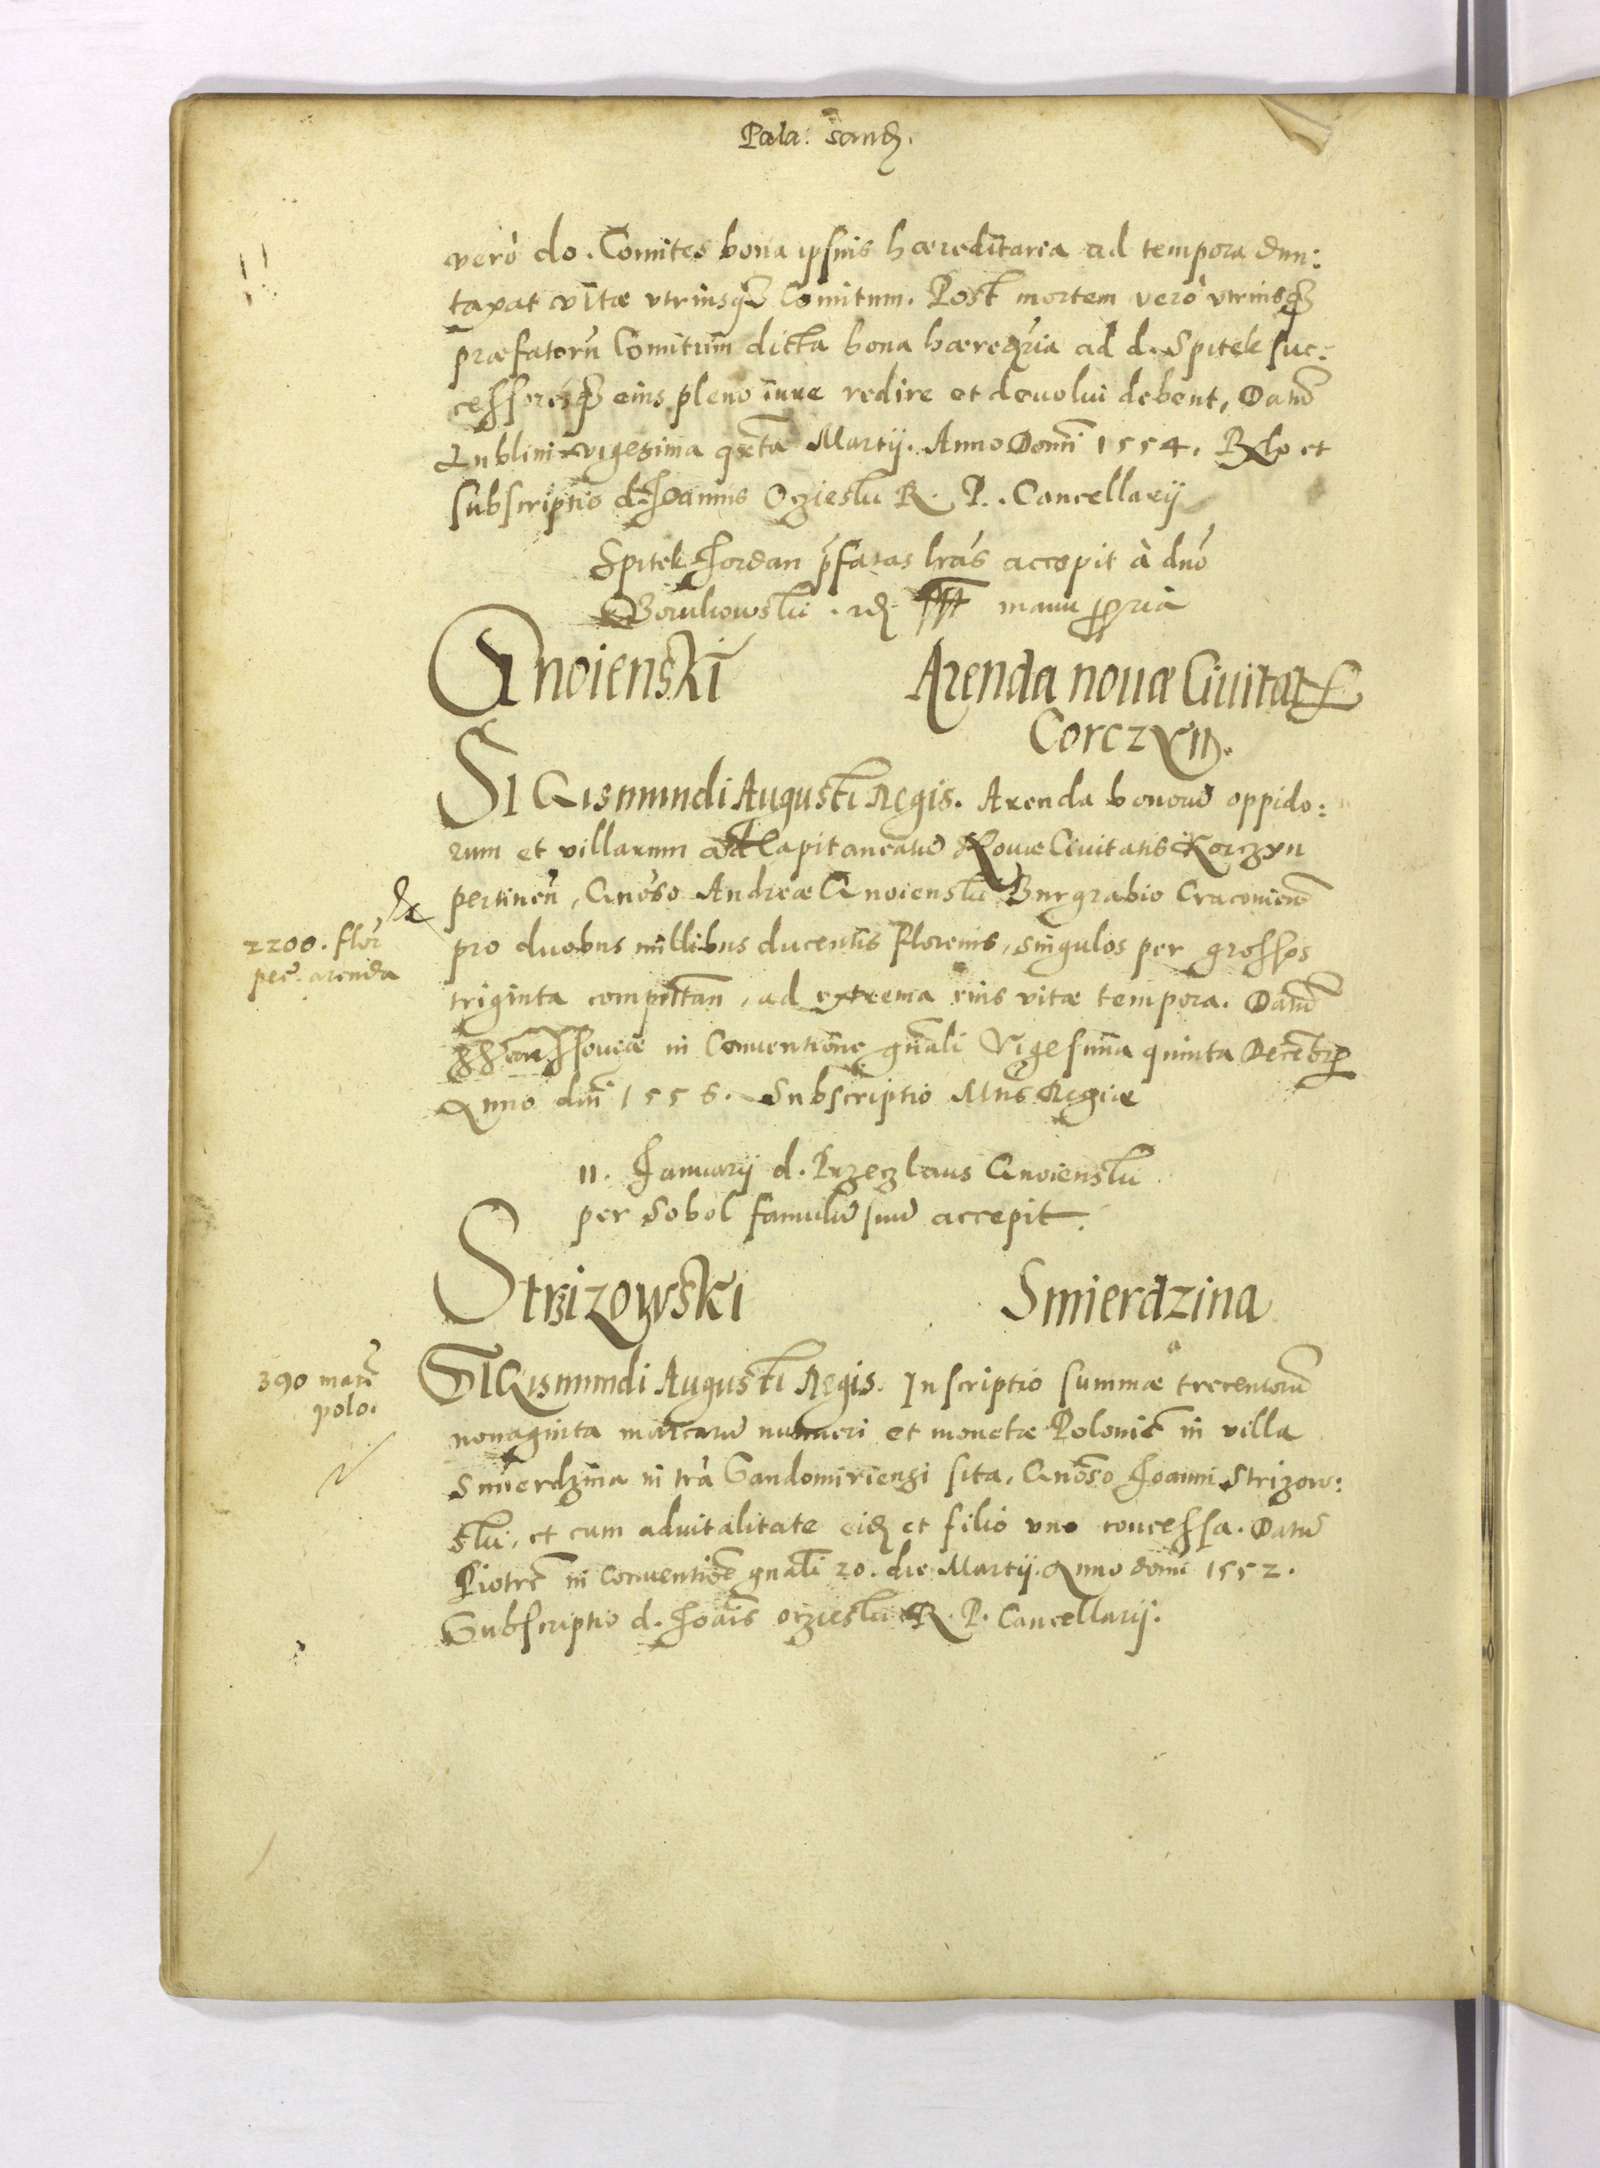 Pala: Sand.
vero do. Comites bona ipsius haereditaria ad tempora dun:
taxat vitae vtriusq Comitum. Post mortem vero vtriusq
praefatorū Comitum dicta bona haered̃ria ad d. Spitek suc:
cessoresq eius pleno iure redire et deuolui debent, Datū
Lublini vigesima qrta Martij. Anno Domĩ 1554. Rlo et
subscriptio d. Joannis Oczieski R. P. Cancellarij
Spitek Jordan p̃fatas lrãs accepit à dnõ
Borukowski. id. sspt manu ppria
Gnoienski
Arenda nouae Ciuitatis
Corczyn.
SIGismundi Augusti Regis. Arenda bonorū oppido:
rum et villarum ad Capitaneatū Nouae Ciuitatis Korczyn
pertineñ, Gnõso Andreae Gnoienski Burgrabio Cracouieñ
2200. flor
per arenda
pro duobus millibus ducentis Florenis, singulos per grossos
triginta computañ, ad extrema eius vitae tempora. Datū
Varssouiae in Conuentione gñali Vigesima quinta Decẽbr
Anno dñi 1556. Subscriptio Mtis Regiae
11. Januarij d. Przeczlaus Gnoienski
per Sobol famulū suū accepit.
Strizowski
Smierdzina
390 marc
polo.
SIGismundi Augusti Regis. Inscriptio summae trecentorū
a
nonaginta marcarū numeri et monetae Polonic in villa
Smierdzina in trà Sandomiriensi sita, Gnõso Joanni Strizow:
ski, et cum aduitalitate eid et filio vno concessa. Datū
Piotrc in Conuentiõe gnãli 20. die Martij. Anno domi 1552.
Subscriptio d. Joãis oczieski R. P. Cancellarij.